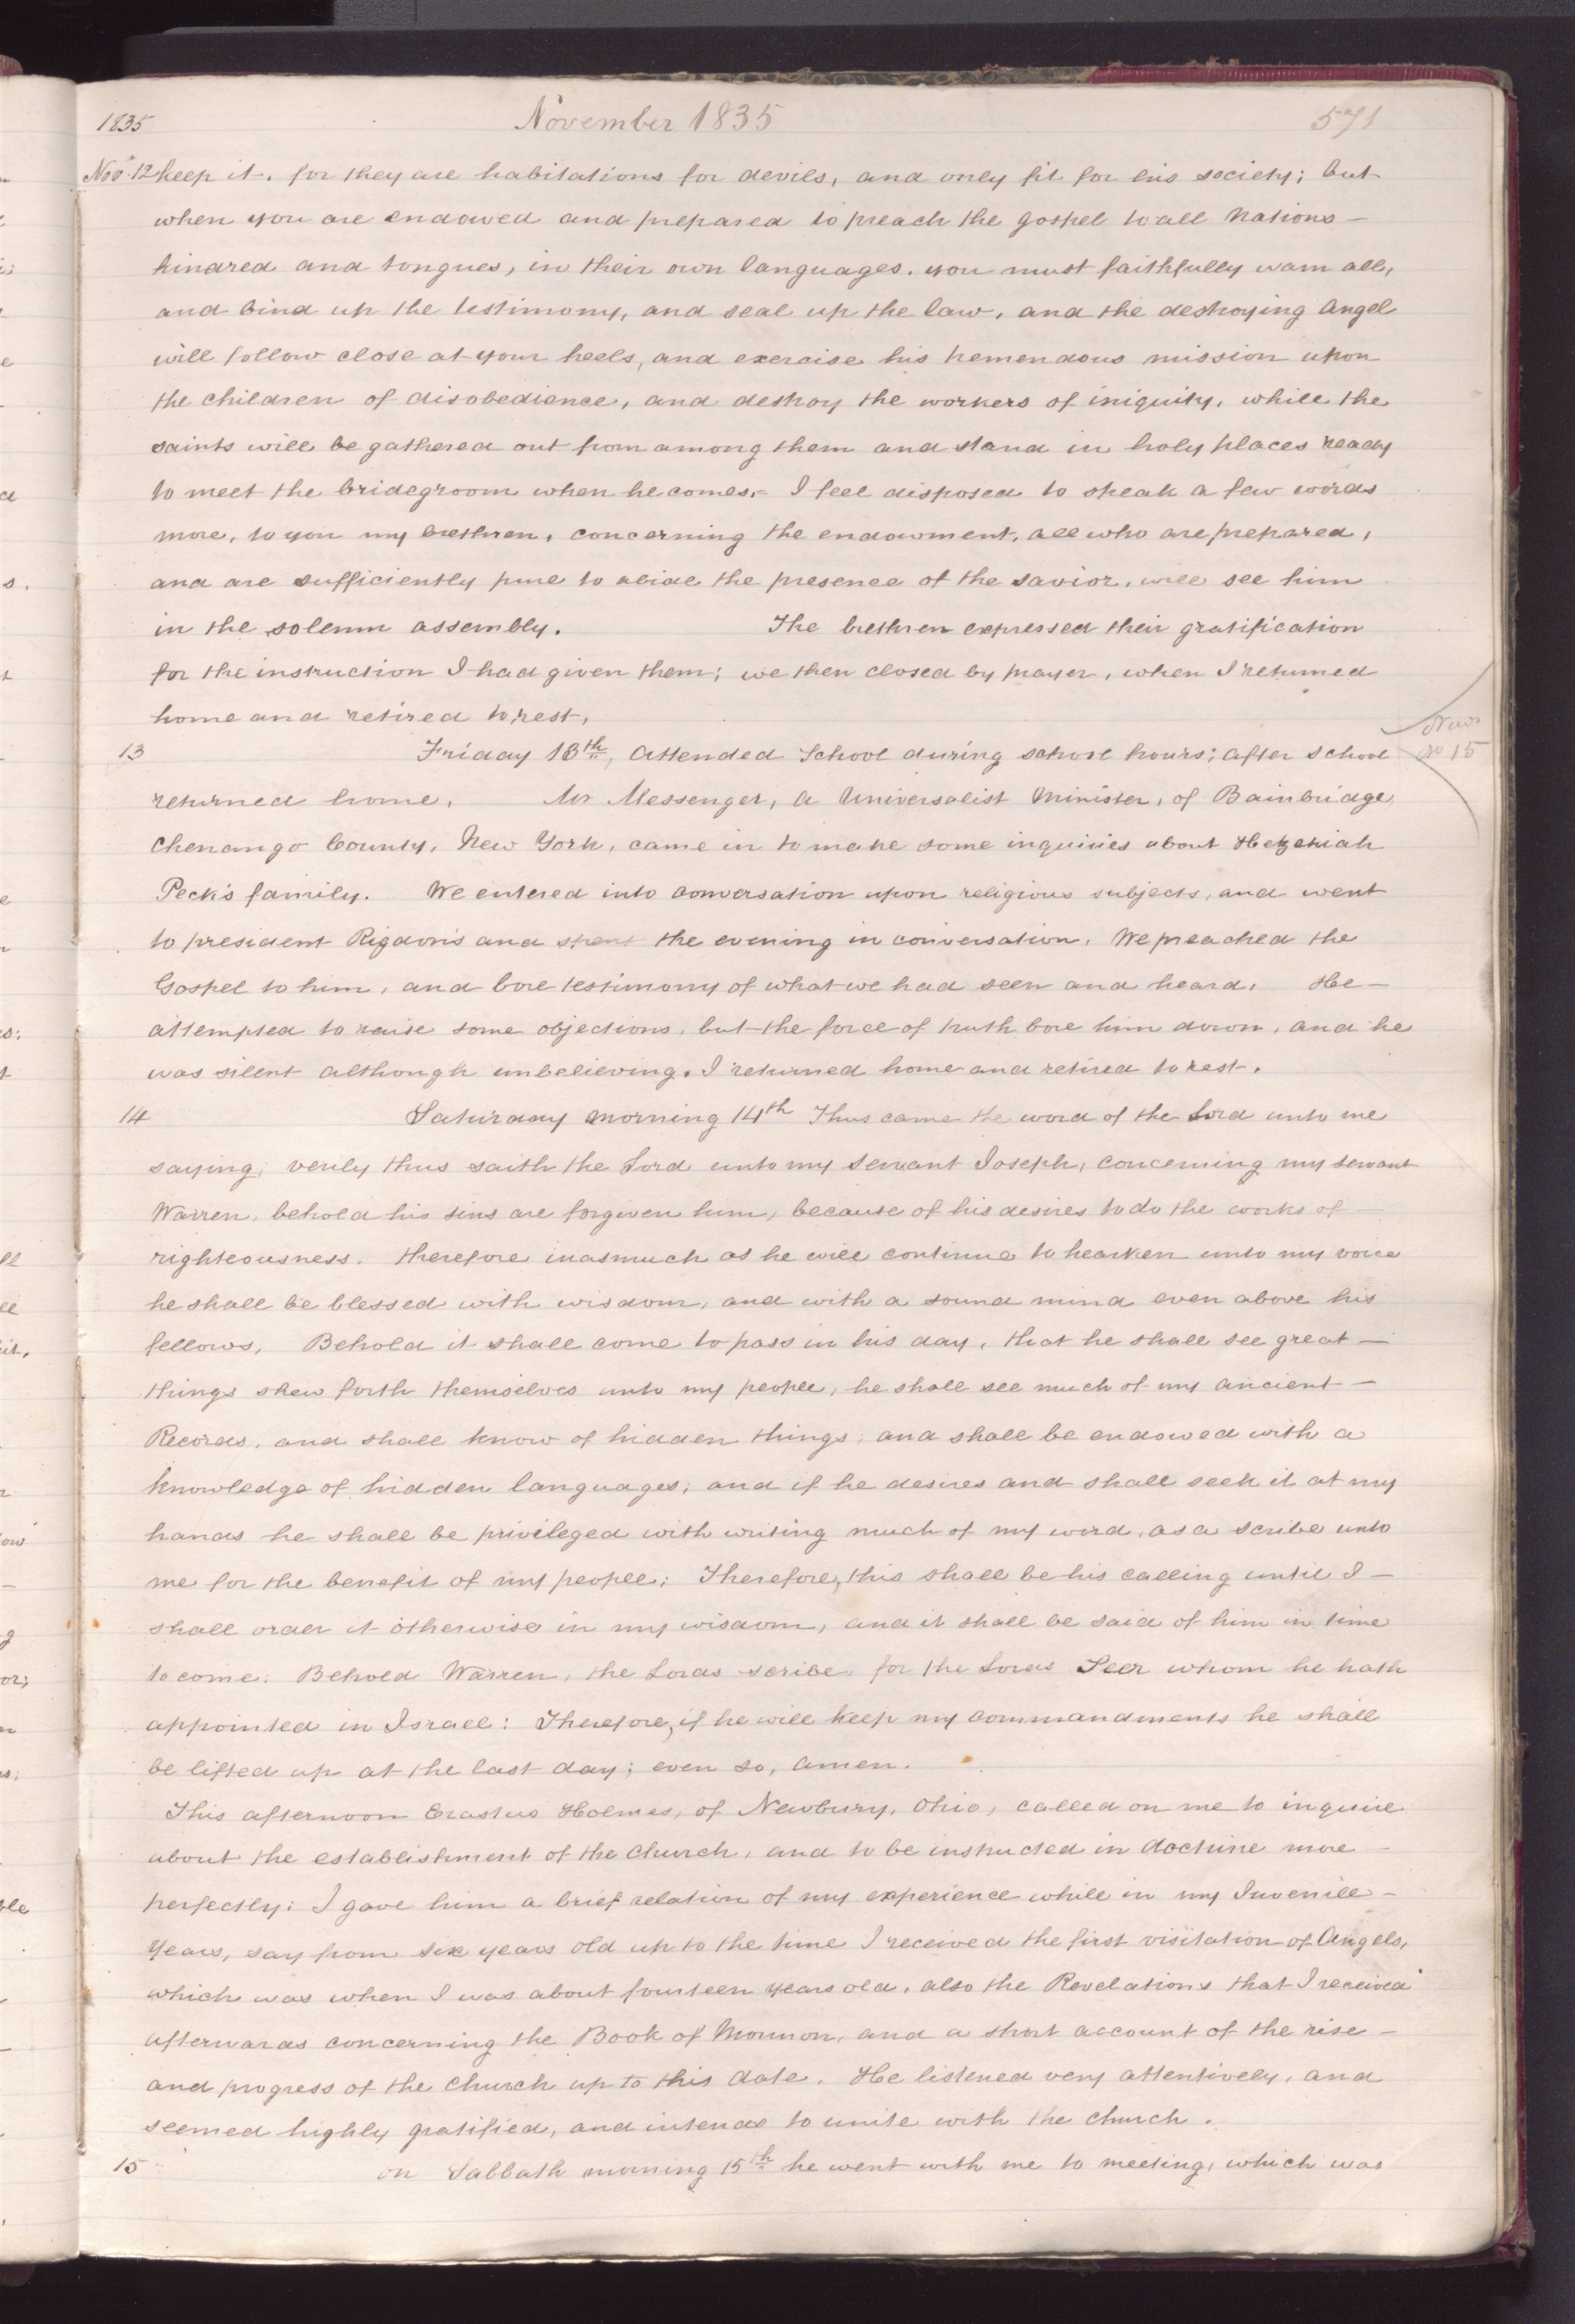 1835 November 1835 571
Nov. 12 keep it, for they are habitations for devils, and only fit for his society; but
when you are endowed and prepared to preach the gospel to all Nations —
kindred and tongues, in their own languages. you must faithfully warn all,
and bind up the testimony, and seal up the law, and the destroying angel
will follow close at your heels, and exercise his tremendous mission upon
the children of disobedience, and destroy the workers of iniquity, while the
saints will be gathered out from among them and stand in holy places ready
to meet the bridegroom when he comes.– I feel disposed to speak a few words
more, to you my brethren, concerning the endowment, all who are prepared,
and are sufficiently pure to abide the presence of the savior, will see him
in the solemn assembly. The brethren expressed their gratification
for the instruction I had given them; we then closed by prayer, when I returned
home and retired to rest,
13 Friday 13th, Attended School during school hours; after school
No 15
returned home. Mr Messenger, a Universalist Minister, of Bainbridge,
Chenango County, New York, came in to make some inquiries about Hezekiah
Peck's family. We entered into conversation upon religious subjects, and went
to president Rigdon's and spent the evening in conversation. We preached the
Gospel to him, and bore testimony of what we had seen and heard. He —
attempted to raise some objections, but the force of truth bore him down, and he
was silent although unbelieving. I returned home and retired to rest.
14 Saturday morning 14th Thus came the word of the Lord unto me
saying; verily thus saith the Lord unto my servant Joseph, concerning my servant
Warren, behold his sins are forgiven him, because of his desires to do the works of —
righteousness. therefore inasmuch as he will continue to hearken unto my voice
he shall be blessed with wisdom, and with a sound mind even above his
fellows, Behold it shall come to pass in his day, that he shall see great —
things shew forth themselves unto my people, he shall see much of my ancient —
Records, and shall know of hidden things, and shall be endowed with a
knowledge of hidden languages; and if he desires and shall seek it at my
hands he shall be privileged with writing much of my word, as a scribe unto
me for the benefit of my people; Therefore, this shall be his calling until I —
shall order it otherwise in my wisdom, and it shall be said of him in time
to come: Behold Warren, the Lords scribe, for the Lords Seer whom he hath
appointed in Israel: Therefore, if he will keep my commandments he shall
be lifted up at the last day; even so, amen.
This afternoon Erastus Holmes, of Newbury, Ohio, called on me to inquire
about the establishment of the church, and to be instructed in doctrine more —
perfectly: I gave him a brief relation of my experience while in my Juvenile —
years, say from six years old up to the time I received the first visitation of Angels,
which was when I was about fourteen years old, also the Revelations that I received
afterwards concerning the Book of Mormon, and a short account of the rise —
and progress of the church up to this date. He listened very attentively, and
seemed highly gratified, and intends to unite with the church.
15 on Sabbath morning 15th he went with me to meeting, which was